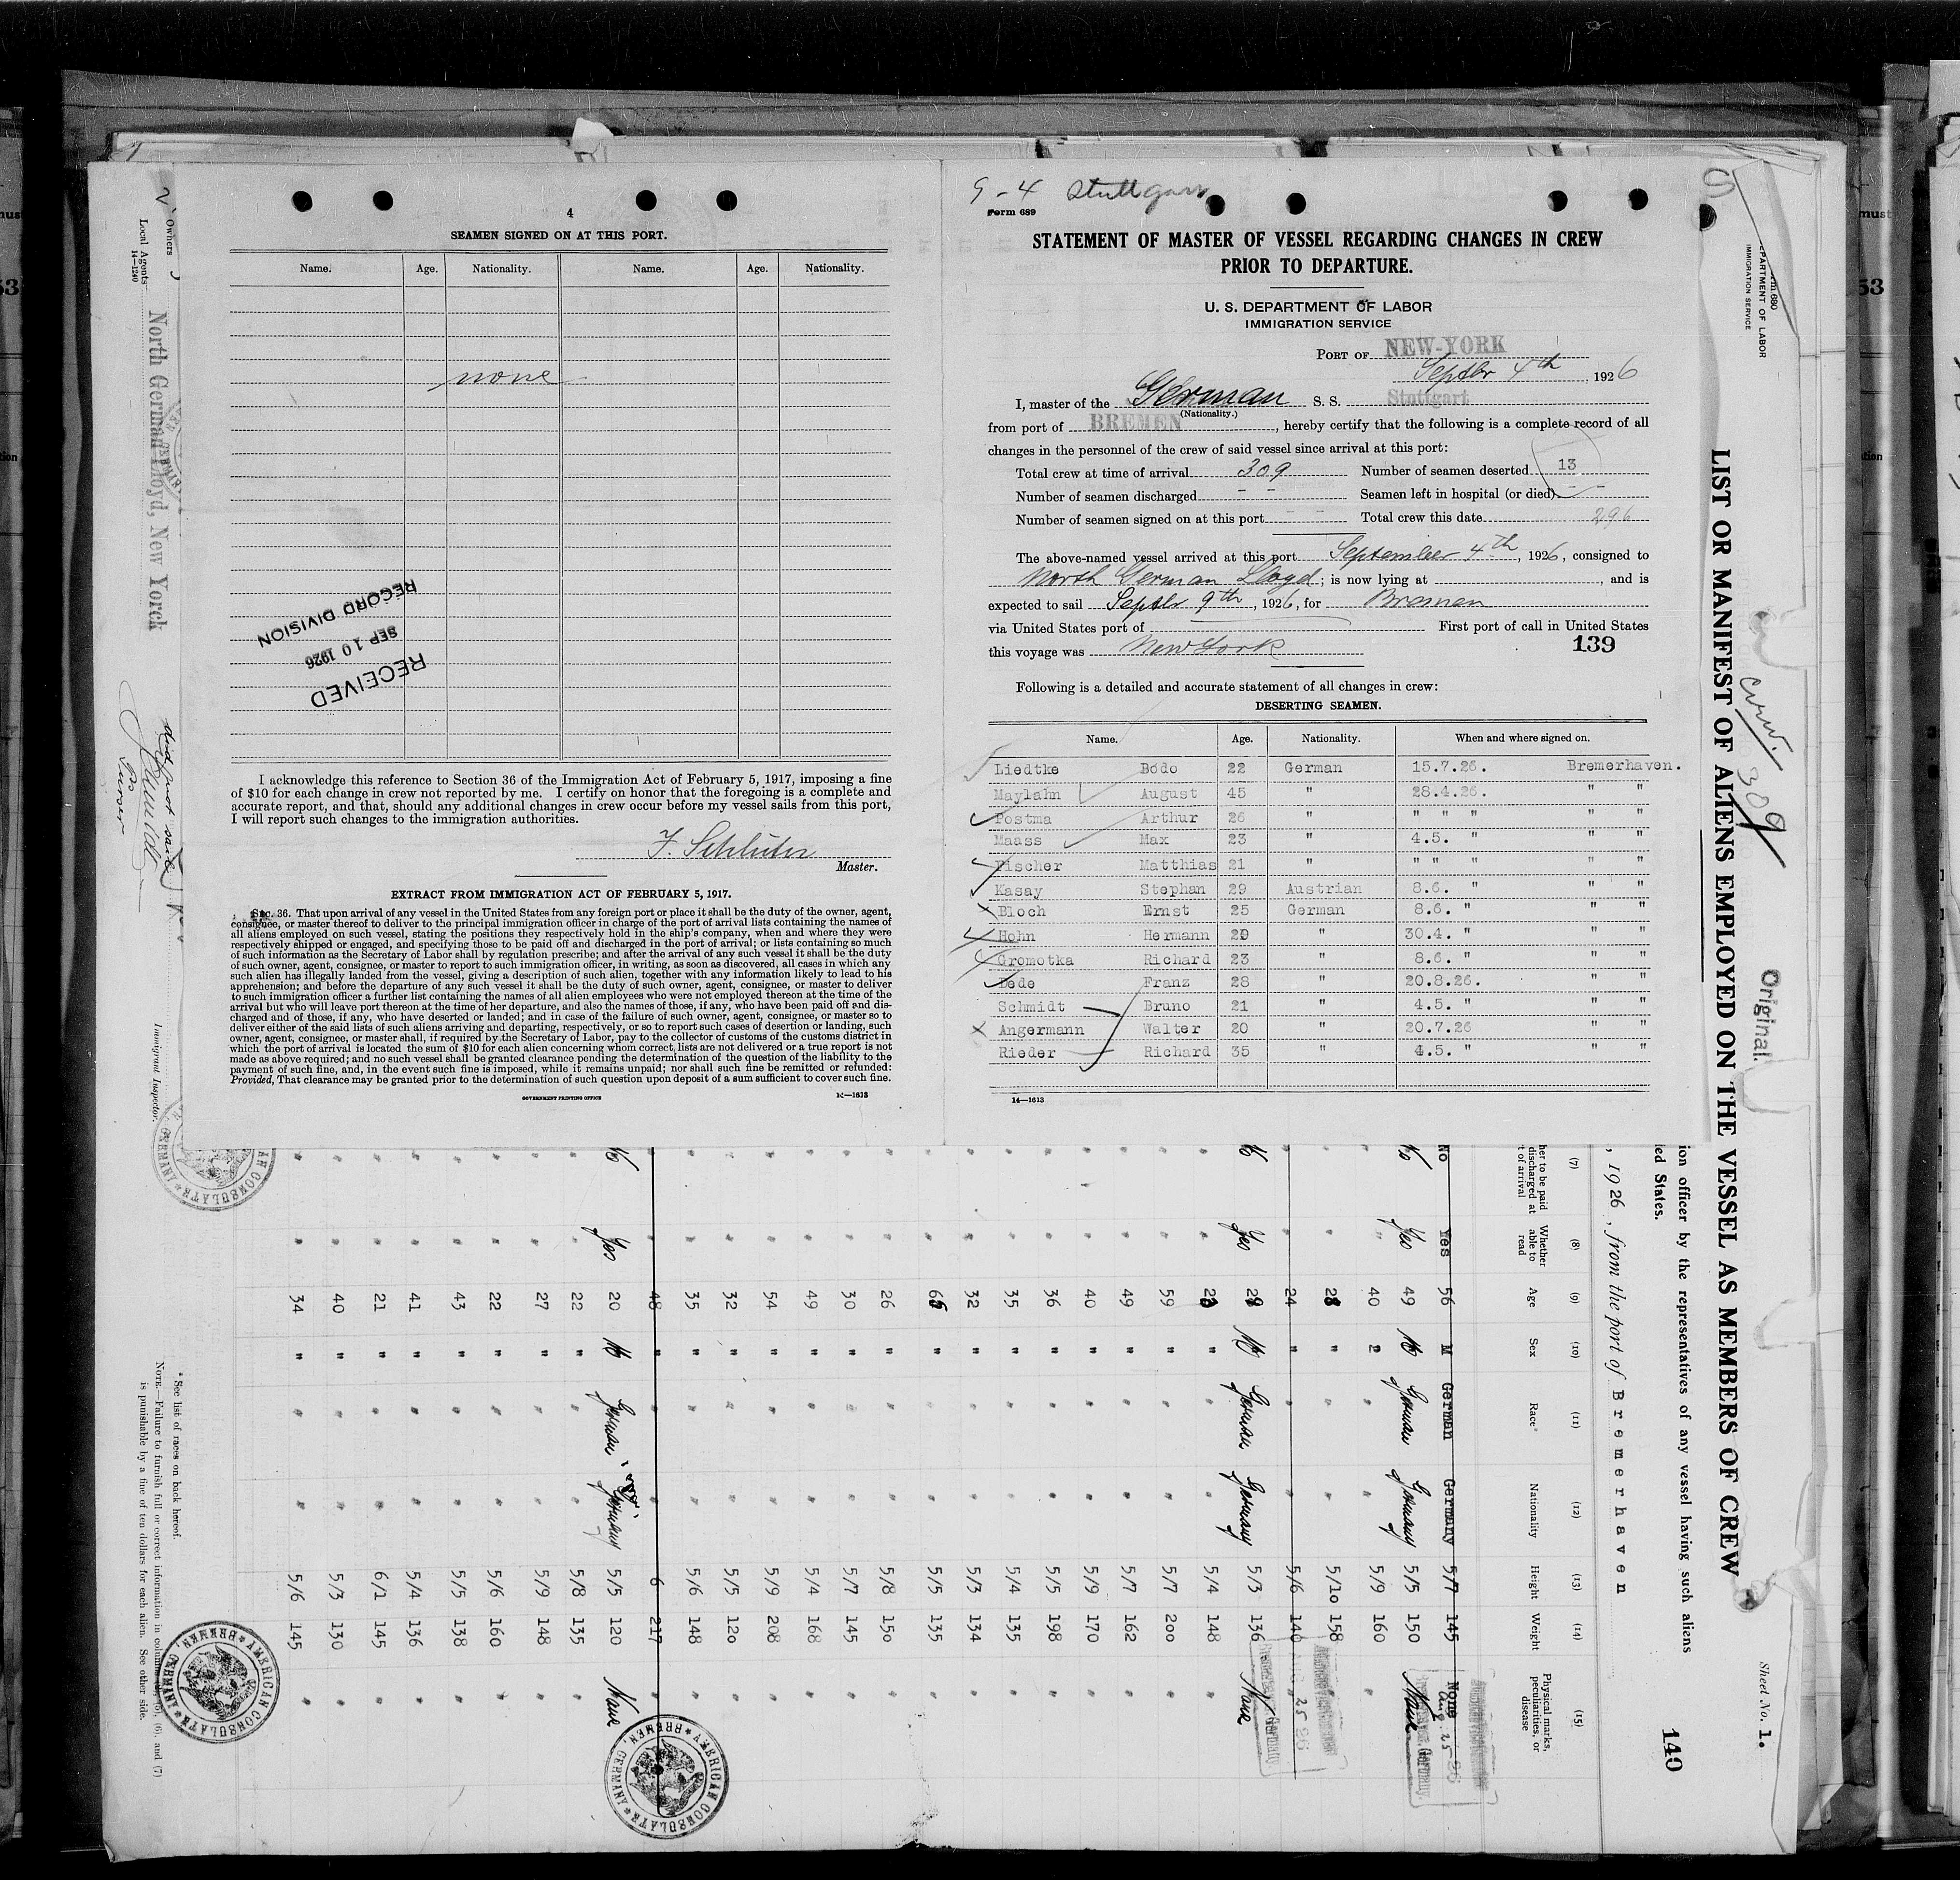 4
SEAMEN SIGNED ON AT THIS PORT.
Name. Age. Nationality. Name. Age. Nationality.
none
RECEIVED
SEP 10 1926
RECORD DIVISION
I acknowledge this reference to Section 36 of the Immigration Act of February 5, 1917, imposing a fine
of $10 for each change in crew not reported by me. I certify on honor that the foregoing is a complete and
accurate report, and that, should any additional changes in crew occur before my vessel sails from this port,
I will report such changes to the immigration authorities.
F. Schlüter
Master.
EXTRACT FROM IMMIGRATION ACT OF FEBRUARY 5, 1917.
Sec. 36. That upon arrival of any vessel in the United States from any foreign port or place it shall be the duty of the owner, agent,
consignee, or master thereof to deliver to the principal immigration officer in charge of the port of arrival lists containing the names of
all aliens employed on such vessel, stating the positions they respectively hold in the ship's company, when and where they were
respectively shipped or engaged, and specifying those to be paid off and discharged in the port of arrival; or lists containing so much
of such information as the Secretary of Labor shall by regulation prescribe; and after the arrival of any such vessel it shall be the duty
of such owner, agent, consignee, or master to report to such immigration officer, in writing, as soon as discovered, all cases in which any
such alien has illegally landed from the vessel, giving a description of such alien, together with any information likely to lead to his
apprehension; and before the departure of any such vessel it shall be the duty of such owner, agent, consignee, or master to deliver
to such immigration officer a further list containing the names of all alien employees who were not employed thereon at the time of the
arrival but who will leave port thereon at the time of her departure, and also the names of those, if any, who have been paid off and dis-
charged and of those, if any, who have deserted or landed; and in case of the failure of such owner, agent, consignee, or master so to
deliver either of the said lists of such aliens arriving and departing, respectively, or so to report such cases of desertion or landing, such
owner, agent, consignee, or master, shall, if required by the Secretary of Labor, pay to the collector of customs of the customs district in
which the port of arrival is located the sum of $10 for each alien concerning whom correct lists are not delivered or a true report is not
made as above required; and no such vessel shall be granted clearance pending the determination of the question of the liability to the
payment of such fine, and, in the event such fine is imposed, while it remains unpaid; nor shall such fine be remitted or refunded:
Provided, That clearance may be granted prior to the determination of such question upon deposit of a sum sufficient to cover such fine.
GOVERNMENT PRINTING OFFICE 14—1613
9-4 Stuttgart
Form 689
STATEMENT OF MASTER OF VESSEL REGARDING CHANGES IN CREW
PRIOR TO DEPARTURE.
U. S. DEPARTMENT OF LABOR
IMMIGRATION SERVICE
PORT OF NEW-YORK
Septbr 4th, 1926
I, master of the German S. S. Stuttgart
(Nationality.)
from port of BREMEN, hereby certify that the following is a complete record of all
changes in the personnel of the crew of said vessel since arrival at this port:
Total crew at time of arrival 309 Number of seamen deserted 13
Number of seamen discharged - - Seamen left in hospital (or died) - -
Number of seamen signed on at this port - - Total crew this date 296
The above-named vessel arrived at this port September 4th, 1926, consigned to
North German Lloyd; is now lying at , and is
expected to sail Septbr 9th, 1926, for Bremen
via United States port of First port of call in United States
this voyage was New York 139
Following is a detailed and accurate statement of all changes in crew:
DESERTING SEAMEN.
Name. Age. Nationality. When and where signed on.
Liedtke Bodo 22 German 15.7.26. Bremerhaven.
Maylahn August 45 " 28.4.26. " "
Postma Arthur 26 " " " " " "
Maass Max 23 " 4.5. " " "
Fischer Matthias 21 " " " " " "
Kasay Stephan 29 Austrian 8.6. " " "
Bloch Ernst 25 German 8.6. " " "
Hohn Hermann 29 " 30.4. " " "
Gromotka Richard 23 " 8.6. " " "
Lede Franz 28 " 20.8.26. " "
Schmidt Bruno 21 " 4.5. " " "
Angermann Walter 20 " 20.7.26 " "
Rieder Richard 35 " 4.5. " " "
14—1613
DEPARTMENT OF LABOR
IMMIGRATION SERVICE
Sheet No. 1.
Original.
crew. 309
LIST OR MANIFEST OF ALIENS EMPLOYED ON THE VESSEL AS MEMBERS OF CREW
140
ion officer by the representatives of any vessel having such aliens
ed States.
, 1926, from the port of Bremerhaven
(7) (8) (9) (10) (11) (12) (13) (14) (15)
her to be paid discharged at t of arrival
Whether able to read
Age
Sex
Race*
Nationality
Height
Weight
Physical marks, peculiarities, or disease
No Yes 56 M German Germany 5/7 145 None
No Yes 49 M German Germany 5/5 150 None
" " 40 " " " 5/9 160 "
" " 28 " " " 5/10 158
" " 24 " " " 5/6 140
No Yes 29 M German Germany 5/3 136 None
" " 23 " " " 5/4 148 "
" " 59 " " " 5/7 200 "
" " 49 " " " 5/7 162 "
" " 40 " " " 5/9 170 "
" " 36 " " " 5/5 198 "
" " 35 " " " 5/4 135 "
" " 32 " " " 5/3 134 "
" " 65 " " " 5/5 135 "
" " 26 " " " 5/8 150 "
" " 30 " " " 5/7 145 "
" " 49 " " " 5/4 168 "
" " 54 " " " 5/9 208 "
" " 32 " " " 5/5 120 "
" " 35 " " " 5/6 148 "
" " 48 " " " 6 217
No Yes 20 M German Germany 5/5 120 None
" " 22 " " " 5/8 135 "
" " 27 " " " 5/9 148 "
" " 22 " " " 5/6 160 "
" " 43 " " " 5/5 138 "
" " 41 " " " 5/4 136 "
" " 21 " " " 6/1 145 "
" " 40 " " " 5/3 130 "
" " 34 " " " 5/6 145 "
AMERICAN CONSULATE BREMEN, GERMANY
AMERICAN CONSULATE BREMEN, GERMANY
Owners
Local Agents North German Lloyd, New York
14—1240
did not sail
Purser
Immigrant Inspector.
* See list of races on back hereof.
NOTE.—Failure to furnish full or correct information in columns (6), and (7)
is punishable by a fine of ten dollars for each alien. See other side.